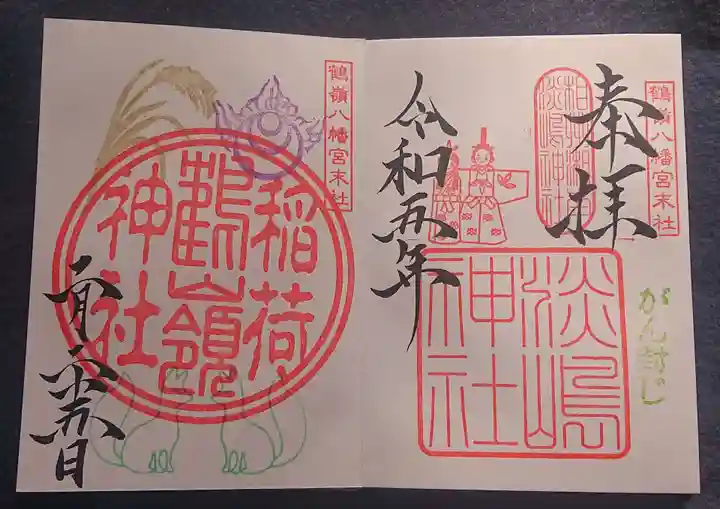 鶴嶺八幡宮末社
奉拝
淡嶋神社
がん封じ
淡嶋
神社
令和五年
鶴嶺八幡宮末社
稲荷
鶴嶺
神社